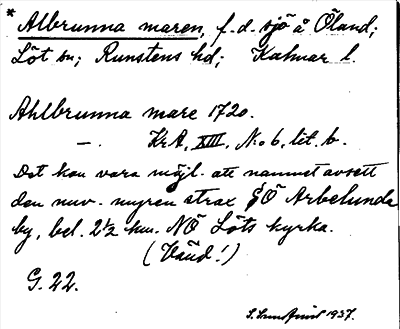 * Albrunna maren, f.d. sjö å Öland;
Löt sn; Runstens hd; Kalmar l.
Ahlbrunna mare 1720.
—. KrA, XIII, No 6, lit. b.
Det kan vara möjl. att namnet avsett
den nuv. myren strax SÖ Arbelunda
by, bel. 2½ km. NÖ Löts kyrka.
(Vänd!)
G. 22.
1937.